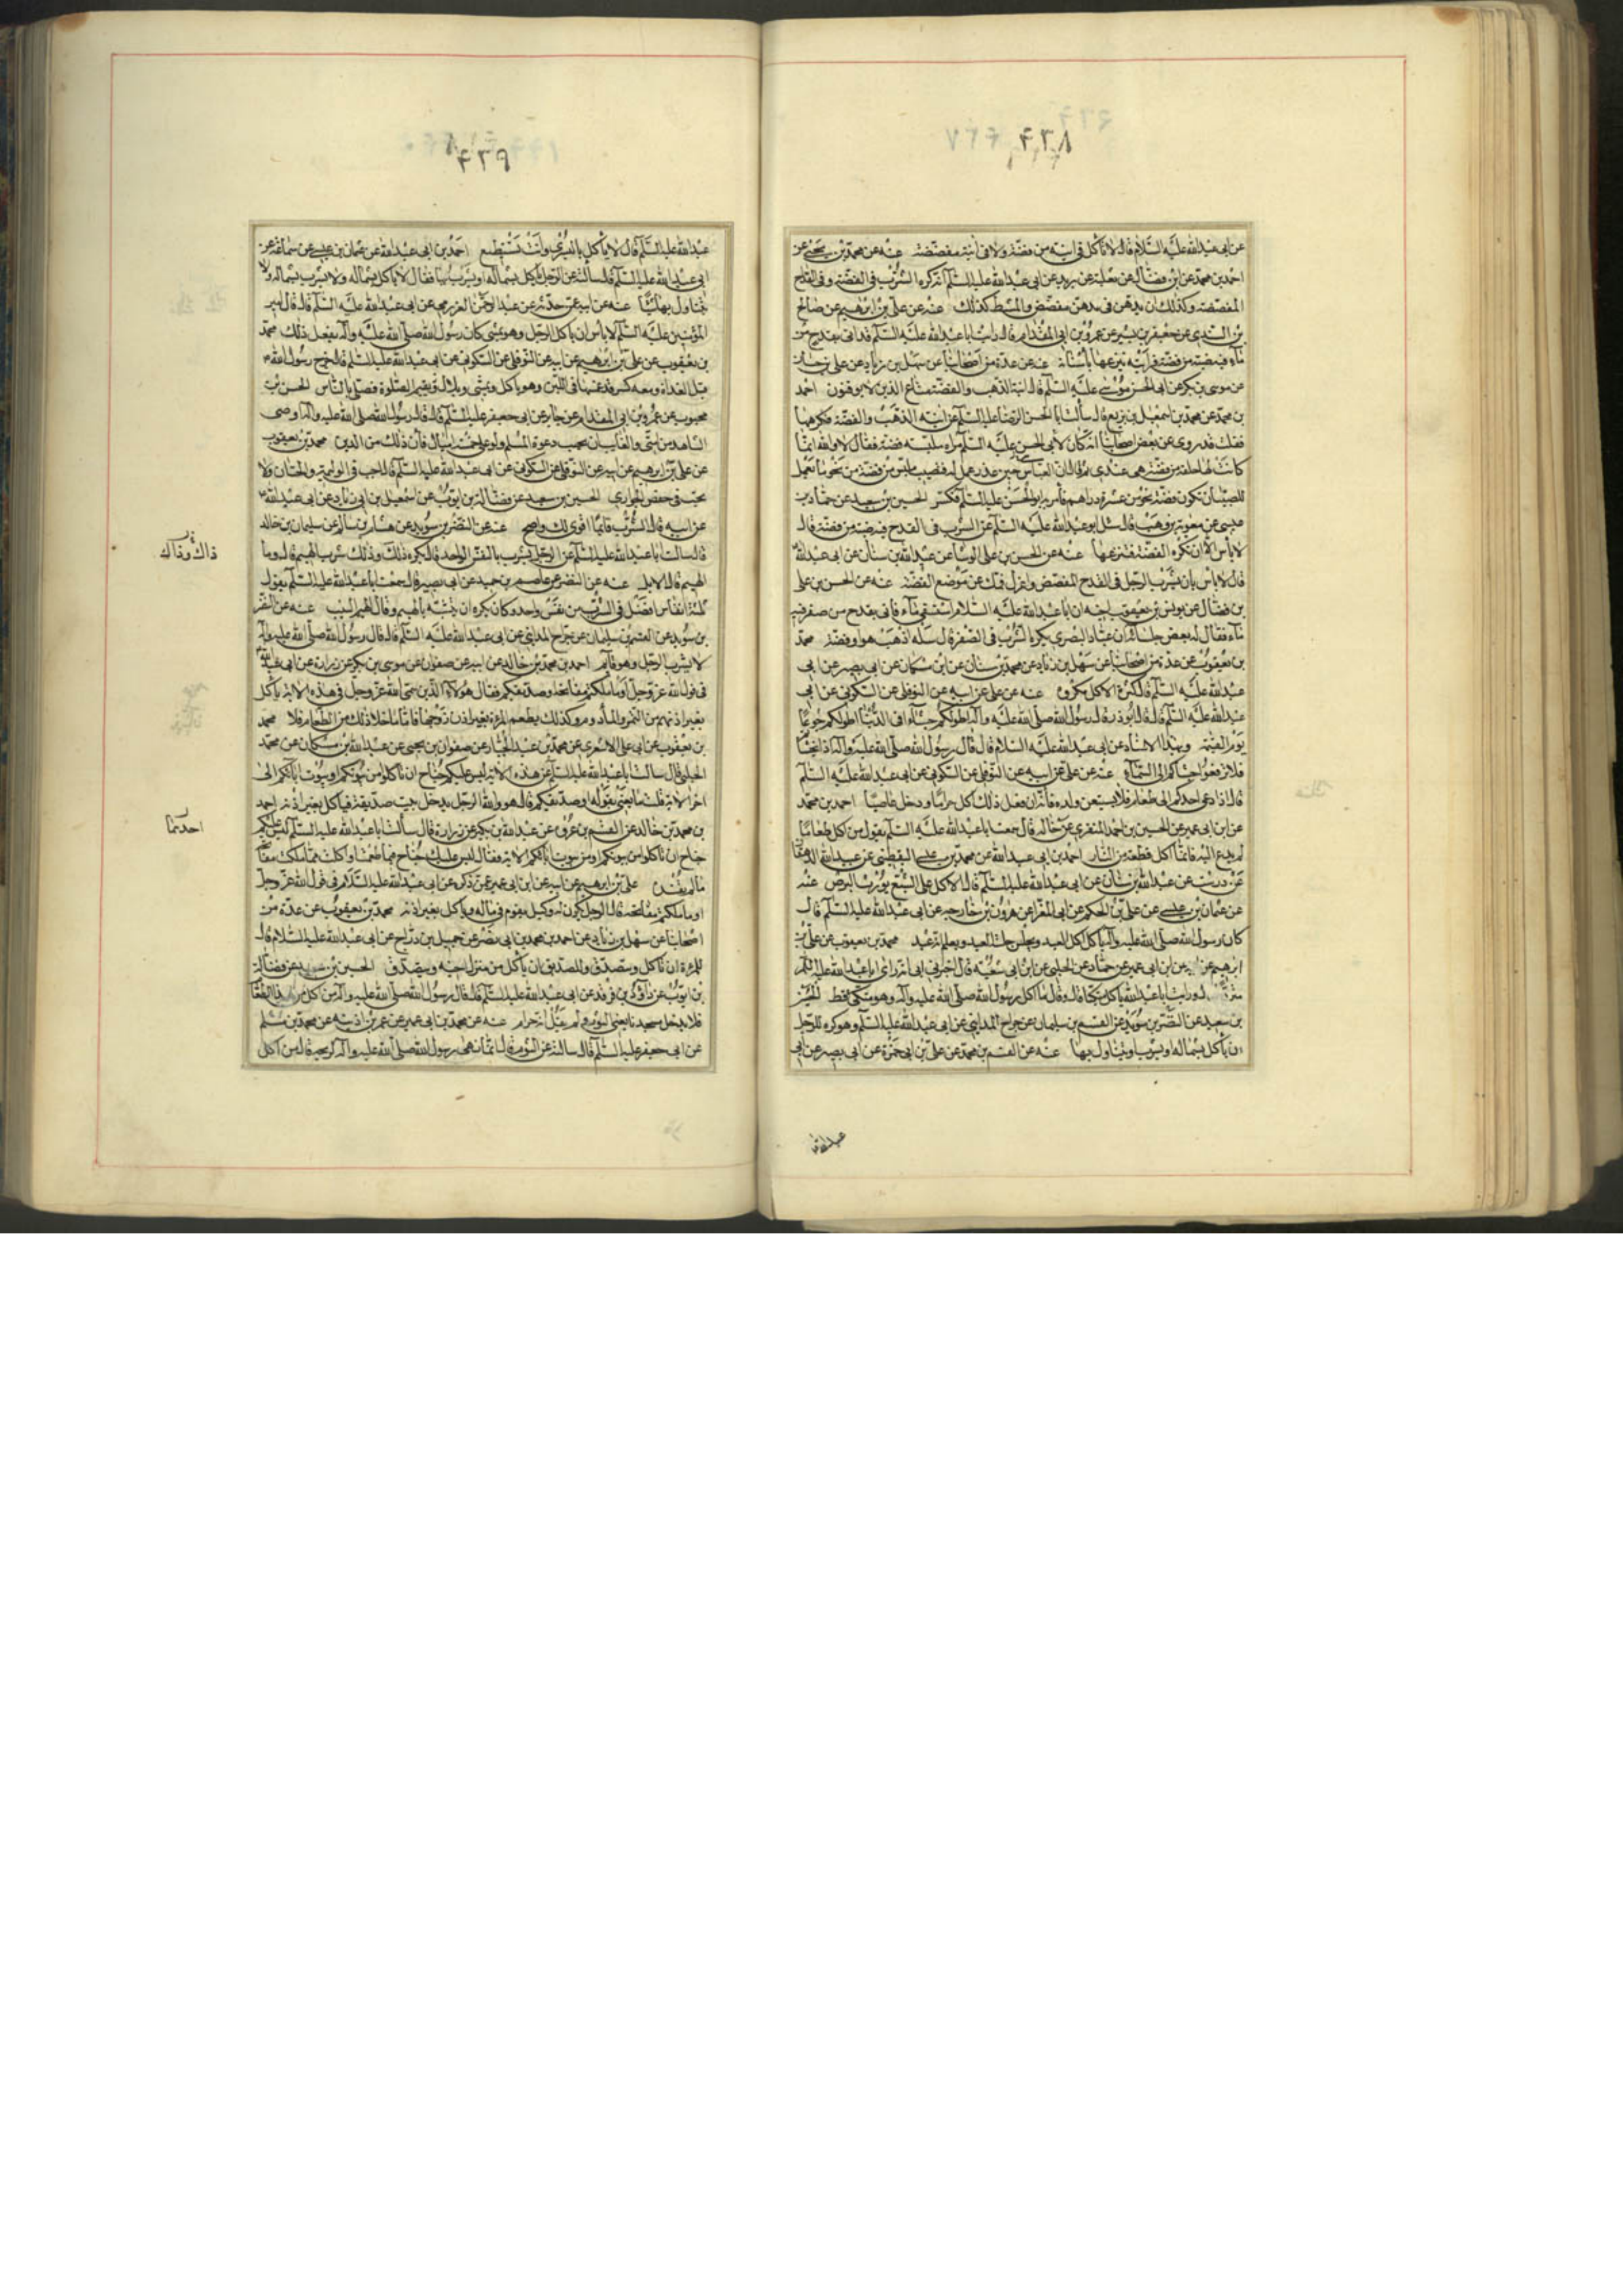 ۴۳۸
عن ابى عبد الله عليه السلام قال لا تأكل فى آنية من فضة ولا فى آنية مفضضة عنه عن محمد بن يحيى عن
احمد بن محمد عن ابن فضال عن ثعلبة عن بريد عن ابى عبد الله عليه السلم انه كره الشرب فى الفضة وفى القدح
المفضضة وكذلك ان يدهن فى مدهن مفضض والمشط كذلك عنه عن على بن ابرهيم عن صالح
بن السندى عن جعفر بن بشير عن عمرو بن ابى المقدام قال رايت ابا عبد الله عليه السلم قد اتى بقدح من
ماء فيه ضبة من فضة فرأيته ينزعها بأسنانه عنه عن عدة من اصحابنا عن سهل بن زياد عن على بن حسان
عن موسى بن بكر عن ابى الحسن موسى عليه السلم قال آنية الذهب والفضة متاع الذين لا يوقنون احمد
بن محمد عن محمد بن اسمعيل بن بزيع قال سألت ابا الحسن الرضا عليه السلم عن آنية الذهب والفضة فكرههما
فقلت قد روى عن بعض اصحابنا انه كان لأبى الحسن عليه السلم مرآة ملبسة فضة فقال لا والله انما
كانت لها حلقة من فضة هى عندى ثم قال ان العباس حين عذر عمل له قضيب ملبس من فضة من نحو ما يعمل
للصبيان تكون فضة نحو من عشرة دراهم فأمر به ابو الحسن عليه السلم فكسر الحسين بن سعيد عن حماد بن
عيسى عن معوية بن وهب قال سئل ابو عبد الله عليه السلم عن الشرب فى القدح فيه ضبة من فضة قال
لا بأس الا ان تكره الفضة فتنزعها عنه عن الحسن بن على الوشا عن عبد الله بن سنان عن ابى عبد الله
قال لا بأس بان يشرب الرجل فى القدح المفضض واعزل فمك عن موضع الفضة عنه عن الحسن بن على
بن فضال عن يونس بن يعقوب عن اخيه ان ابا عبد الله عليه السلام استسقى ماء فأتى بقدح من صفر فيه
ماء فقال له بعض جلسائه ان عباد البصرى يكره الشرب فى الصفر قال سله اذهب هو او فضة محمد
بن يعقوب عن عدة من اصحابنا عن سهل بن زياد عن محمد بن سنان عن ابن مسكان عن ابى بصير عن ابى
عبد الله عليه السلم قال كثرة الاكل مكروه عنه عن على عن ابيه عن النوفلى عن السكونى عن ابى
عبد الله عليه السلم قال قال ابو ذر قال رسول الله صلى الله عليه وآله اطولكم جشاء فى الدنيا اطولكم جوعا
يوم القيمة وبهذا الاسناد عن ابى عبد الله عليه السلام قال قال رسول الله صلى الله عليه وآله اذا تجشأ
فلا ترفعوا جشاكم الى السماء عنه عن على عن ابيه عن النوفلى عن السكونى عن ابى عبد الله عليه السلم
قال اذا دعى احدكم الى طعام فلا يستتبعن ولده فأنه ان فعل ذلك اكل حراما ودخل غاصبا احمد بن محمد
عن ابن ابى عمير عن الحسين بن احمد المنقرى عن خاله قال سمعت ابا عبد الله عليه السلم يقول من اكل طعاما
لم يدع اليه فانما اكل قطعة من النار احمد بن ابى عبد الله عن محمد بن عيسى اليقطينى عن عبيد الله الدهقان
عن درست عن عبد الله بن سنان عن ابى عبد الله عليه السلم قال الاكل على الشبع يورث البرص عنه
عن عثمان بن عيسى عن على بن الحكم عن ابى المغرا عن هرون بن خارجه عن ابى عبد الله عليه السلم قال
كان رسول الله صلى الله عليه وآله يأكل اكل العبد ويجلس جلسة العبد ويعلم انه عبد محمد بن يعقوب عن على بن
ابرهيم عن ابيه عن ابن ابى عمير عن حماد عن الحلبى عن ابن ابى شعبه قال اخبرنى ابى انه راى ابا عبد الله عليه السلم
قال ورايت ابا عبد الله يأكل متكئا قال وقال ما اكل رسول الله صلى الله عليه وآله وهو متكئ قط الحسين
بن سعيد عن النضر بن سويد عن القسم بن سليمان عن جراح المداينى عن ابى عبد الله عليه السلم وهو كره للرجل
ان يأكل بشماله او يشرب او يتناول بها عنه عن القسم بن محمد عن على بن ابى حمزة عن ابى بصير عن ابى
۴۳۹
عبد الله عليه السلم قال لا يأكل باليسرى وانت تستطيع احمد بن ابى عبد الله عن عثمان بن عيسى عن سماعة عن
ابى عبد الله عليه السلم قال سألته عن الرجل يأكل بشماله او يشرب بها فقال لا يأكل بشماله ولا يشرب بشماله ولا
يتناول بها شيئا عنه عن ابيه عمن حدثه عن عبد الرحمن العزرمى عن ابى عبد الله عليه السلم قال قال امير
المؤمنين عليه السلم لا بأس ان يأكل الرجل وهو يمشى كان رسول الله صلى الله عليه وآله يفعل ذلك محمد
بن يعقوب عن على بن ابرهيم عن ابيه عن النوفلى عن السكونى عن ابى عبد الله عليه السلم قال خرج رسول الله ص
قبل الغداة ومعه كسرة قد غمسها فى اللبن وهو يأكل ويمشى وبلال يقيم الصلوة فصلى بالناس الحسن بن
محبوب عن عمرو بن ابى المقدام عن جابر عن ابى جعفر عليه السلم قال قال رسول الله صلى الله عليه وآله اوصى
الشاهد من امتى والغايب ان يجيب دعوة المسلم ولو على خمسة اميال فأن ذلك من الدين محمد بن يعقوب
عن على بن ابرهيم عن ابيه عن النوفلى عن السكونى عن ابى عبد الله عليه السلم قال اجب فى الوليمة والختان ولا
تجب فى خفض الجوارى الحسين بن سعيد عن فضالة بن ايوب عن اسمعيل بن ابى زياد عن ابى عبد الله
عن ابيه قال الشرب قائما اقوى لك واصح عنه عن النضر بن سويد عن هشام بن سالم عن سليمان بن خالد
قال سالت ابا عبد الله عليه السلم عن الرجل يشرب بالنفس الواحد قال يكره ذلك وذلك شرب الهيم قال وما
الهيم قال الابل عنه عن النضر عن عاصم بن حميد عن ابى بصير قال سمعت ابا عبد الله عليه السلم يقول
ثلثة انفاس افضل فى الشرب من نفس واحد وكان يكره ان يتشبه بالهيم وقال الهيم النيب عنه عن النضر
بن سويد عن القسم بن سليمان عن جراح المداينى عن ابى عبد الله عليه السلم قال قال رسول الله صلى الله عليه وآله
لا يشرب الرجل وهو قائم احمد بن محمد بن خالد عن ابيه عن صفوان عن موسى بن بكر عن زرارة عن ابى عبد الله
فى قول الله عز وجل او ما ملكتم مفاتحه او صديقكم فقال هؤلاء الذين سمى الله عز وجل فى هذه الاية يأكل
بغير اذنهم من التمر والمأدوم وكذلك يطعم المرأة بغير اذن زوجها فأما ما خلا ذلك من الطعام فلا محمد
بن يعقوب عن ابى على الاشعرى عن محمد بن عبد الجبار عن صفوان بن يحيى عن عبد الله بن مسكان عن محمد
الحلبى قال سالت ابا عبد الله عليه السلم عن هذه الاية ليس عليكم جناح ان تأكلوا من بيوتكم او بيوت ابائكم الى
اخر الاية قلت ما يعنى بقوله او صديقكم قال هو والله الرجل يدخل بيت صديقه فيأكل بغير اذنه احمد
بن محمد بن خالد عن القسم بن عروة عن عبد الله بن بكير عن زرارة قال سألت ابا عبد الله عليه السلم ليس عليكم
جناح ان تاكلوا من بيوتكم او من بيوت ابائكم الاية فقال ليس عليك جناح فيما طعمت او اكلت مما ملكت مفاتحه
ما لم يفسد على بن ابرهيم عن ابيه عن ابن ابى عمير عمن ذكره عن ابى عبد الله عليه السلام فى قول الله عز وجل
او ما ملكتم مفاتحه قال الرجل يكون له وكيل يقوم فى ماله وياكل بغير اذنه محمد بن يعقوب عن عدة من
اصحابنا عن سهل بن زياد عن احمد بن محمد بن ابى نصر عن جميل بن دراج عن ابى عبد الله عليه السلام قال
للمرءة ان تأكل وتصدق وللصديق ان يأكل من منزل اخيه ويتصدق الحسين بن سعيد عن فضالة
بن ايوب عن داود بن فرقد عن ابى عبد الله عليه السلم قال قال رسول الله صلى الله عليه وآله من اكل من هذا الطعام
فلا يدخل مسجدنا يعنى الثوم ولم يقل انه حرام عنه عن محمد بن ابى عمير عن عمر بن اذينه عن محمد بن مسلم
عن ابى جعفر عليه السلم قال سالته عن الثوم قال انما نهى رسول الله صلى الله عليه وآله لريحه قال من اكل
ذاك وذاك
احدكما
عبد الله